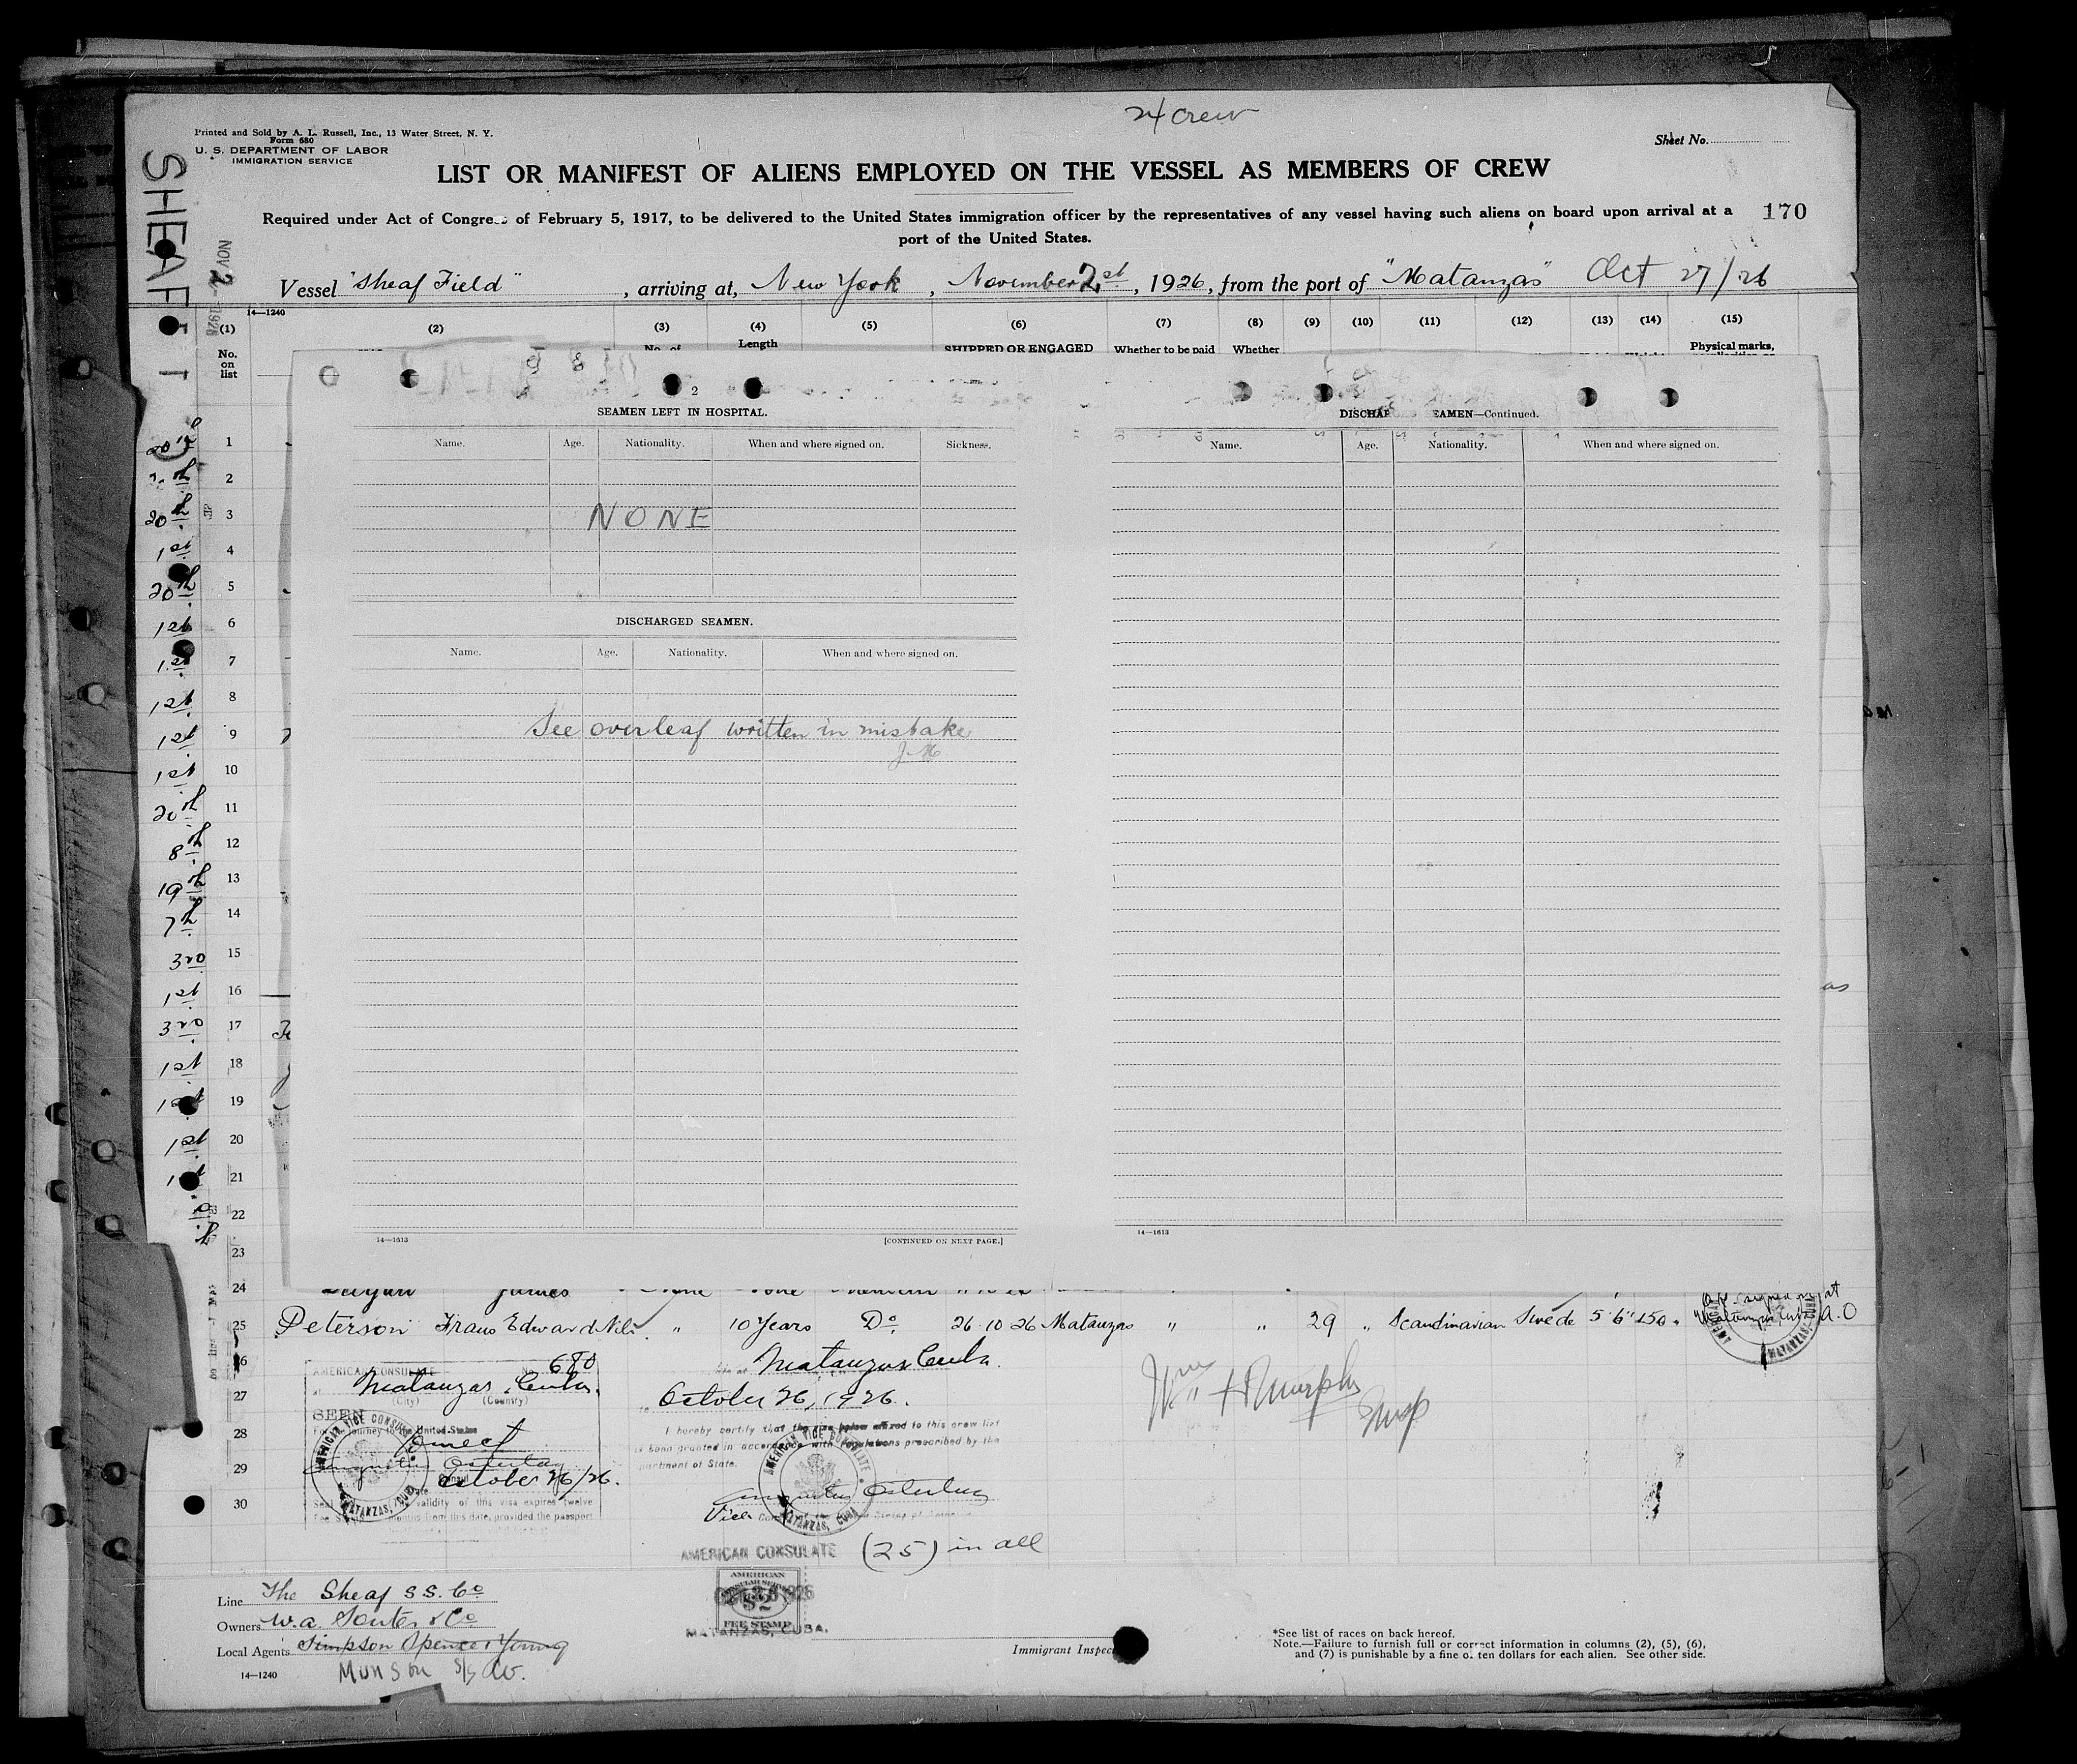 24 crew
Printed and Sold by A. L. Russell, Inc., 13 Water Street, N. Y.
Form 680
U. S. DEPARTMENT OF LABOR
IMMIGRATION SERVICE
Sheet No.
LIST OR MANIFEST OF ALIENS EMPLOYED ON THE VESSEL AS MEMBERS OF CREW
Required under Act of Congress of February 5, 1917, to be delivered to the United States immigration officer by the representatives of any vessel having such aliens on board upon arrival at a
port of the United States.
170
SHEAF
NOV 2 - 1926
Vessel "Sheaf Field", arriving at, New York, November 2st, 1926, from the port of "Matanzas" Oct 27/26
14—1240
(1) (2) (3) (4) (5) (6) (7) (8) (9) (10) (11) (12) (13) (14) (15)
No. on list No. of Length SHIPPED OR ENGAGED Whether to be paid Whether Physical marks,
2
SEAMEN LEFT IN HOSPITAL.
Name. Age. Nationality. When and where signed on. Sickness.
NONE
DISCHARGED SEAMEN.
Name. Age. Nationality. When and where signed on.
See overleaf written in mistake
J. M
14—1613 [CONTINUED ON NEXT PAGE.]
DISCHAR EAMEN—Continued.
Name. Age. Nationality. When and where signed on.
14—1613
1
2
20th 3
1st 4
20th 5
1st 6
1st 7
1st 8
1st 9
1st 10
20th 11
8th 12
19th 13
7th 14
3rd 15
1st 16
3rd 17
1st 18
1st 19
1st 20
21
22
23
24 James
25 Peterson Frans Edward Nils " 10 Years Do 26.10.26 Matanzas " " 29 " Scandinavian Swede 5'6" 150 A.O
26
27
28
29
30
AMERICAN CONSULATE No. 680
at Matanzas, Cuba.
(City) (Country)
SEEN
For the journey to the United States
Direct
Consul
October 26/26.
validity of this visa expires twelve
months from this date, provided the passport
AMERICAN VICE CONSULATE
MATANZAS, CUBA
Matanzas Cuba.
October 26, 1926.
I hereby certify that the visa below affixed to this crew list
been granted in accordance with regulations prescribed by the
partment of State.
AMERICAN VICE CONSULATE
MATANZAS, CUBA
Vice
Wm H Murphy
Insp
AMERICAN CONSULATE (25) in all
AMERICAN
$2
FEE STAMP
MATANZAS, CUBA.
Line The Sheaf S S. Co
Owners W.A. Souter & Co
Local Agents Simpson Spence & Young
14—1240 Munson S/S Co.
Immigrant Inspec
*See list of races on back hereof.
Note.—Failure to furnish full or correct information in columns (2), (5), (6),
and (7) is punishable by a fine of ten dollars for each alien. See other side.